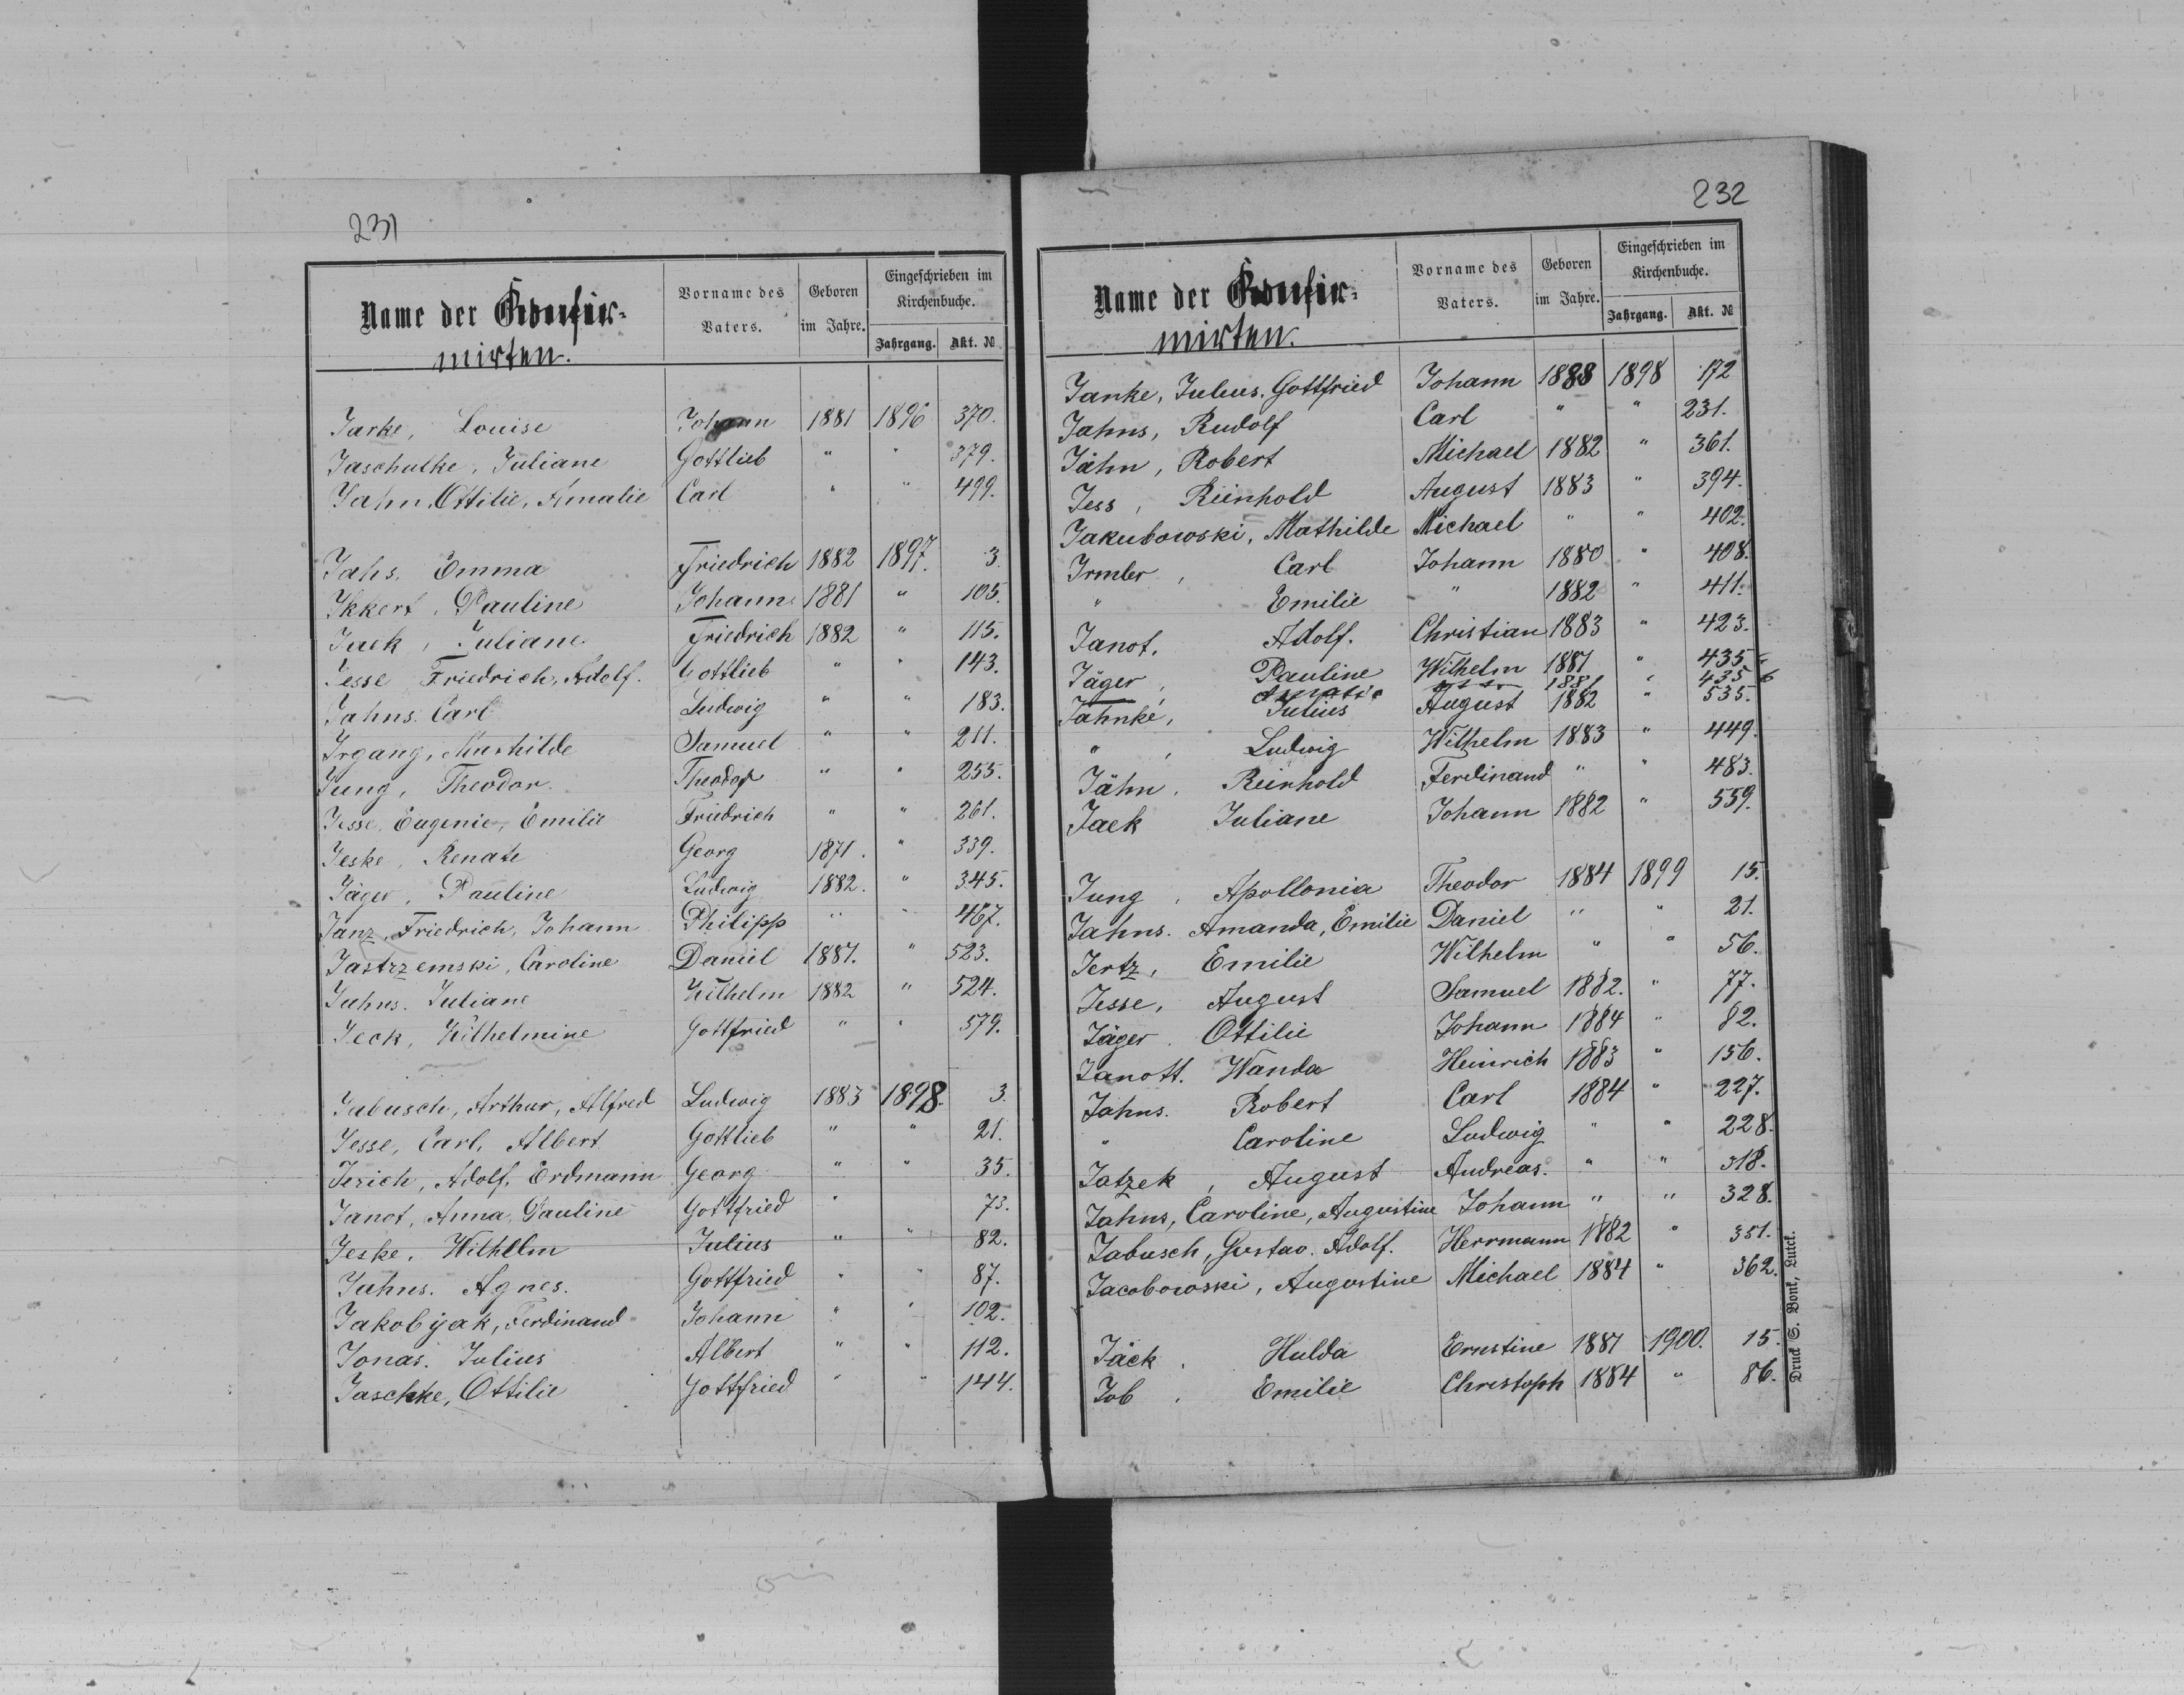 231
Name der Confir-
mirten.
Vorname des
Vaters.
Geboren
im Jahre.
Eingeschrieben im
Kirchenbuche.
Jahrgang. Akt. №
Jarke, Louise Johann 1881 1896 370.
Jaschulke, Juliane Gottlieb " " 379.
Jahn, Ottilie, Amalie Carl " " 499.
Jahs, Emma Friedrich 1882 1897. 3.
Ikkert, Pauline Johann 1881 " 105.
Jaek, Juliane Friedrich 1882 " 115.
Jesse Friedrich, Adolf. Gottlieb " " 143.
Jahns. Carl Ludwig " " 183.
Irgang, Mathilde Samuel " " 211.
Jung, Theodor. Theodor " " 255.
Jesse, Eugenie, Emilie Friedrich " " 261.
Jeske, Renate Georg 1871. " 339.
Jäger, Pauline Ludwig 1882. " 345.
Janz, Friedrich, Johann Philipp " " 467.
Jastrzemski, Caroline Daniel 1881. " 523.
Jahns. Juliane Wilhelm 1882 " 524.
Jeck, Wilhelmine Gottfried " " 579.
Jabusch, Arthur, Alfred Ludwig 1883 1898. 3.
Jesse, Carl, Albert Gottlieb " " 21.
Jerich, Adolf, Erdmann Georg " " 35.
Janot, Anna, Pauline Gottfried " 73.
Jeske, Wilhelm Julius " " 82.
Jahns. Agnes. Gottfried " " 87.
Jakobijak, Ferdinand Johann " " 102.
Jonas. Julius Albert " " 112.
Jaschke, Ottilie Gottfried " " 144.
232
Name der Confir-
mirten.
Vorname des
Vaters.
Geboren
im Jahre.
Eingeschrieben im
Kirchenbuche.
Jahrgang. Akt. №
Janke, Julius. Gottfried Johann 1883 1898 172
Jahns, Rudolf Carl " " 231.
Jähn, Robert Michael 1882 " 361.
Jess, Reinhold August 1883 " 394.
Jakubowski, Mathilde Michael " " 402.
Irmler, Carl Johann 1880 " 408.
" Emilie " 1882 " 411.
Janot. Adolf. Christian 1883 " 423.
Jäger, Pauline Wilhelm 1881 " 435
Amalie 1881 " 435 b
Jahnke, Julius August 1882 " 535.
" , Ludwig Wilhelm 1883 " 449.
Jähn, Reinhold Ferdinand " " 483.
Jaek Juliane Johann 1882 " 559.
Jung, Apollonia Theodor 1884 1899 15.
Jahns. Amanda, Emilie Daniel " " 21.
Jertz, Emilie Wilhelm " " 56.
Jesse, August Samuel 1882. " 77.
Jäger. Ottilie Johann 1884 " 82.
Janott. Wanda Heinrich 1883 " 156.
Jahns. Robert Carl 1884 " 227.
" Caroline Ludwig " " 228.
Jatzek, August Andreas. " " 318.
Jahns, Caroline, Augustine Johann " " 328.
Jabusch, Gustav. Adolf. Herrmann 1882 " 351.
Jacobowski, Augustine Michael 1884 " 362.
Jäck. Hulda Ernstine 1881 1900. 15.
Job. Emilie Christoph 1884 " 86.
Druck S. Bonk, Lutck.